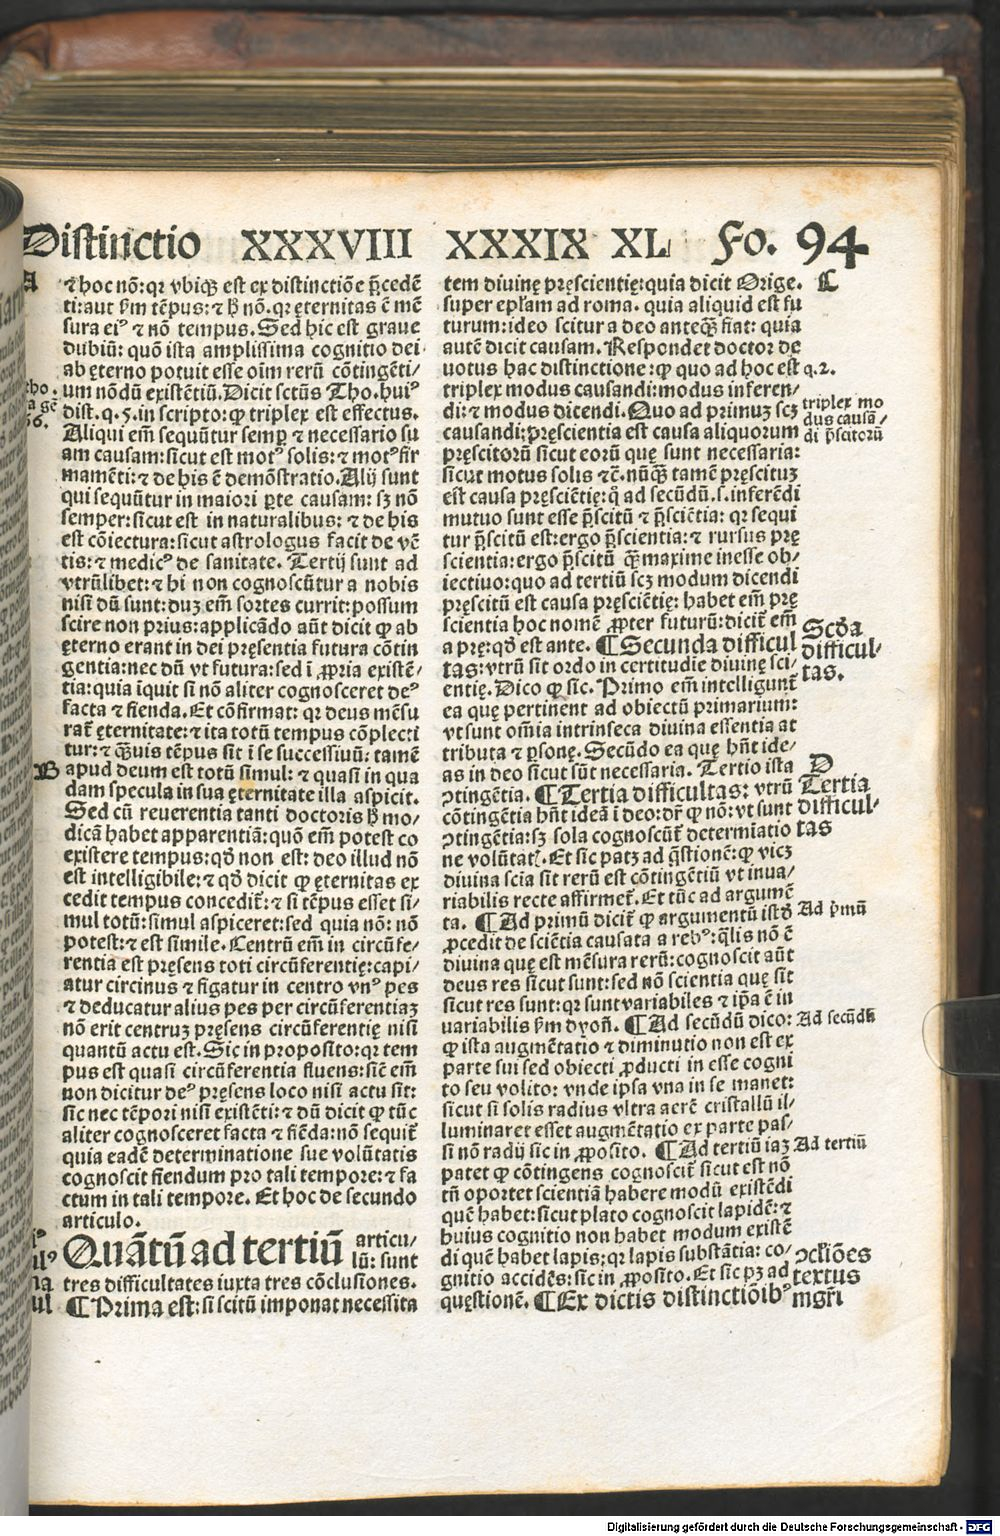 Distinctio XXXVIII XXXIX XL Fo. 94
A
⁊ hoc nō: qꝛ vbiqꝫ est ex distinctiōe p̄cedē
ti: aut ẜm tēpus: ⁊ ħ nō. qꝛ ęternitas ē mē
sura eiꝰ ⁊ nō tempus. Sed hic est graue
dubiū: quō ista amplissima cognitio dei
ab ęterno potuit esse oīm rerū cōtingēti/
um nōdū existētiū. Dicit sctūs Tho. huiꝰ
dist. q. 5. in scripto: ꝙ triplex est effectus.
Aliqui em̄ sequūtur semꝑ ⁊ necessario su
am causam: sicut est motꝰ solis: ⁊ motꝰ fir
mamēti: ⁊ de his ē demōstratio. Alij sunt
qui sequūtur in maiori ꝑte causam: sꝫ nō
semper: sicut est in naturalibus: ⁊ de his
est cōiectura: sicut astrologus facit de vē
tis: ⁊ medicꝰ de sanitate. Tertij sunt ad
vtrūlibet: ⁊ hi non cognoscūtur a nobis
nisi dū sunt: duꝫ em̄ sortes currit: possum
scire non prius: applicādo aūt dicit ꝙ ab
ęterno erant in dei pręsentia futura cōtin
gentia: nec dū vt futura: sed ī ꝓpria existē/
tia: quia iquit si nō aliter cognosceret deꝰ
facta ⁊ fienda. Et cōfirmat: qꝛ deus mēsu
rat᷑ ęternitate: ⁊ ita totū tempus cōplecti
tur: ⁊ qꝫuis tēpus sit ī se successiuū: tamē
B
apud deum est totū simul: ⁊ quasi in qua
dam specula in sua ęternitate illa aspicit.
Sed cū reuerentia tanti doctoris ħ mo/
dicā habet apparentiā: quō em̄ potest co
existere tempus: qđ non est: deo illud nō
est intelligibile: ⁊ qđ dicit ꝙ ęternitas ex
cedit tempus concedit᷑: ⁊ si tēpus esset si/
mul totū: simul aspiceret: sed quia nō: nō
potest: ⁊ est simile. Centrū em̄ in circūfe/
rentia est pręsens toti circūferentię: capi/
atur circinus ⁊ figatur in centro vnꝰ pes
⁊ deducatur alius pes per circūferentiaꝫ
nō erit centruꝫ pręsens circūferentię nisi
quantū actu est. Sic in proposito: qꝛ tem
pus est quasi circūferentia fluens: siē em̄
non dicitur deꝰ pręsens loco nisi actu sit:
sic nec tēpori nisi existēti: ⁊ dū dicit ꝙ tūc
aliter cognosceret facta ⁊ fiēda: nō sequit᷑
quia eadē determinatione sue volūtatis
cognoscit fiendum pro tali tempore: ⁊ fa
ctum in tali tempore. Et hoc de secundo
articulo.
Quātū ad tertiū articu/
lū: sunt
tres difficultates iuxta tres cōclusiones.
¶ Prima est: si scitū imponat necessita
tem divinę pręscientię: quia dicit Orige. C
super epl̄am ad roma. quia aliquid est fu
turum: ideo scitur a deo anteqꝫ fiat: quia
autē dicit causam. Respondet doctor de
uotus hac distinctione: ꝙ quo ad hoc est q. 2.
triplex modus causandi: modus inferen/
di: ⁊ modus dicendi. Quo ad primuꝫ scꝫ
causandi: pręscientia est causa aliquorum
triplex mo
dus causā/
di p̄scitorū
pręscitorū sicut eorū quę sunt necessaria:
sicut motus solis ⁊c̄. nūqꝫ tamē pręscituꝫ
est causa pręsciētię: qꝛ ad secūdū. s. inferēdi
mutuo sunt esse p̄scitū ⁊ p̄sciētia: qꝛ sequi
tur p̄scitū est: ergo p̄scientia: ⁊ rursus pre
scientia: ergo p̄scitū qꝫ maxime inesse ob/
iectiuo: quo ad tertiū scꝫ modum dicendi
pręscitū est causa pręsciētię: habet em̄ prę
scientia hoc nomē ꝓpter futurū: dicit᷑ em̄
a prę: qđ est ante. ¶ Secunda difficul
tas: vtrū sit ordo in certitudīe divinę sci/
entię. Dico ꝙ sic. Primo em̄ intelligunt᷑
Scđa
difficul/
tas.
ea quę pertinent ad obiectū primarium:
vt sunt om̄ia intrinseca divina essentia at
tributa ⁊ ꝑsonę. Secūdo ea quę hn̄t ide/
as in deo sicut sūt necessaria. Tertio ista
ꝯtingētia. ¶ Tertia difficultas: vtrū
cōtingētia hn̄t ideā i deo: dr̄ ꝙ nō: vt sunt
ꝯtingētia: sꝫ sola cognoscūt᷑ determīatio
D
Tertia
difficul/
tas
ne volūtatꝭ. Et sic patꝫ ad qōnē: ꝙ vicꝫ
divina scīa sit rerū est cōtingētiū vt inua/
riabilis recte affirmet᷑. Et tūc ad argumē
ta. ¶ Ad primū dicit᷑ ꝙ argumentū istđ Ad p̄mū
ꝓcedit de sciētia causata a rebꝰ: qͣlis nō ē
divina quę est mēsura rerū: cognoscit aūt
deus res sicut sunt: sed nō scientia quę sit
sicut res sunt: qꝛ sunt variabiles ⁊ ip̄a ē in
uariabilis ẜm dyoñ. ¶ Ad secūdū dico: Ad secūdū
ꝙ ista augmētatio ⁊ diminutio non est ex
parte sui sed obiecti ꝓducti in esse cogni
to seu volito: vnde ipsa vna in se manet:
sicut si solis radius vltra aerē cristallū il/
luminaret esset augmētatio ex parte pas/
si nō radij sic in ꝓposito. ¶ Ad tertiū iaꝫ Ad tertiū
patet ꝙ cōtingens cognoscit᷑ sicut est nō
tn̄ oportet scientiā habere modū existēdi
quē habet: sicut plato cognoscit lapidē: ⁊
huius cognitio non habet modum existē
di quē habet lapis: qꝛ lapis substātia: co/
gnitio accidēs: sic in ꝓposito. Et sic pꝫ ad
questionē. ¶ Ex dictis distinctiōibꝰ
ꝯclīōes
textus
mgr̄i
Digitalisierung gefördert durch die Deutsche Forschungsgemeinschaft - DFG